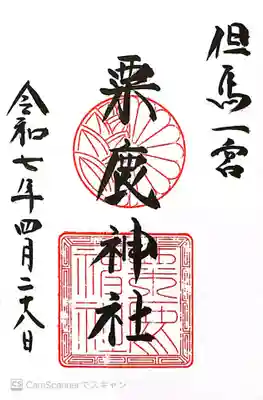 但馬一宮
粟鹿神社
令和七年四月二十八日
CS CamScannerでスキャン